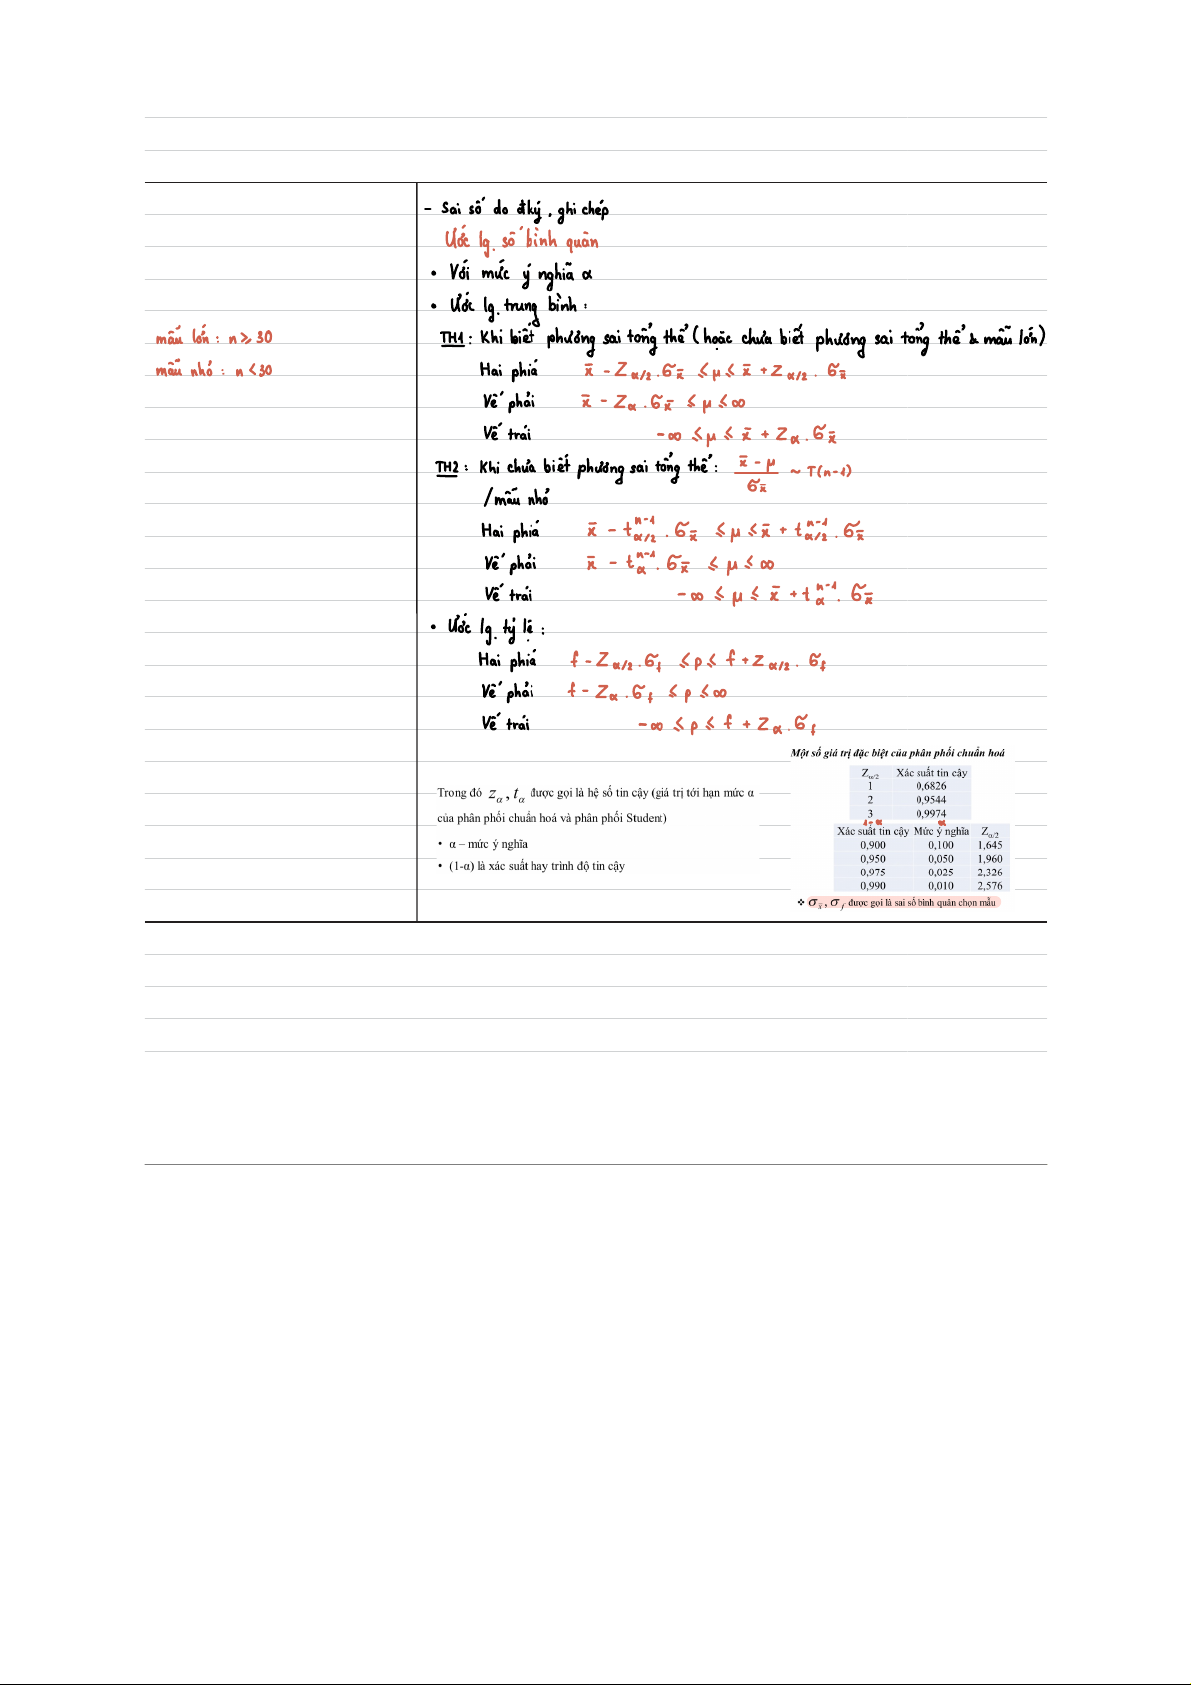 - Sai số do đký, ghi chép
Ước lg. số bình quân
• Với mức ý nghĩa α
• Ước lg. trung bình :
mẫu lớn : n ≥ 30
TH1 : Khi biết phương sai tổng thể (hoặc chưa biết phương sai tổng thể & mẫu lớn)
mẫu nhỏ : n < 30
Hai phía x̄ - Z α/2 . σ x̄ ≤ μ ≤ x̄ + Z α/2 . σ x̄
Vế phải x̄ - Z α . σ x̄ ≤ μ ≤ ∞
Vế trái -∞ ≤ μ ≤ x̄ + Z α . σ x̄
TH2 : Khi chưa biết phương sai tổng thể : (x̄ - μ) / σ x̄ ~ T(n-1)
/mẫu nhỏ
Hai phía x̄ - t α/2 ^n-1 . σ x̄ ≤ μ ≤ x̄ + t α/2 ^n-1 . σ x̄
Vế phải x̄ - t α ^n-1 . σ x̄ ≤ μ ≤ ∞
Vế trái -∞ ≤ μ ≤ x̄ + t α ^n-1 . σ x̄
• Ước lg. tỷ lệ :
Hai phía f - Z α/2 . σ f ≤ p ≤ f + Z α/2 . σ f
Vế phải f - Z α . σ f ≤ p ≤ ∞
Vế trái -∞ ≤ p ≤ f + Z α . σ f
Trong đó z α , t α được gọi là hệ số tin cậy (giá trị tới hạn mức α
của phân phối chuẩn hoá và phân phối Student)
• α – mức ý nghĩa
• (1-α) là xác suất hay trình độ tin cậy
Một số giá trị đặc biệt của phân phối chuẩn hoá
Z α/2 Xác suất tin cậy
1 0,6826
2 0,9544
3 0,9974
1-α α
Xác suất tin cậy Mức ý nghĩa Z α/2
0,900 0,100 1,645
0,950 0,050 1,960
0,975 0,025 2,326
0,990 0,010 2,576
❖ σ x̄ , σ f được gọi là sai số bình quân chọn mẫu